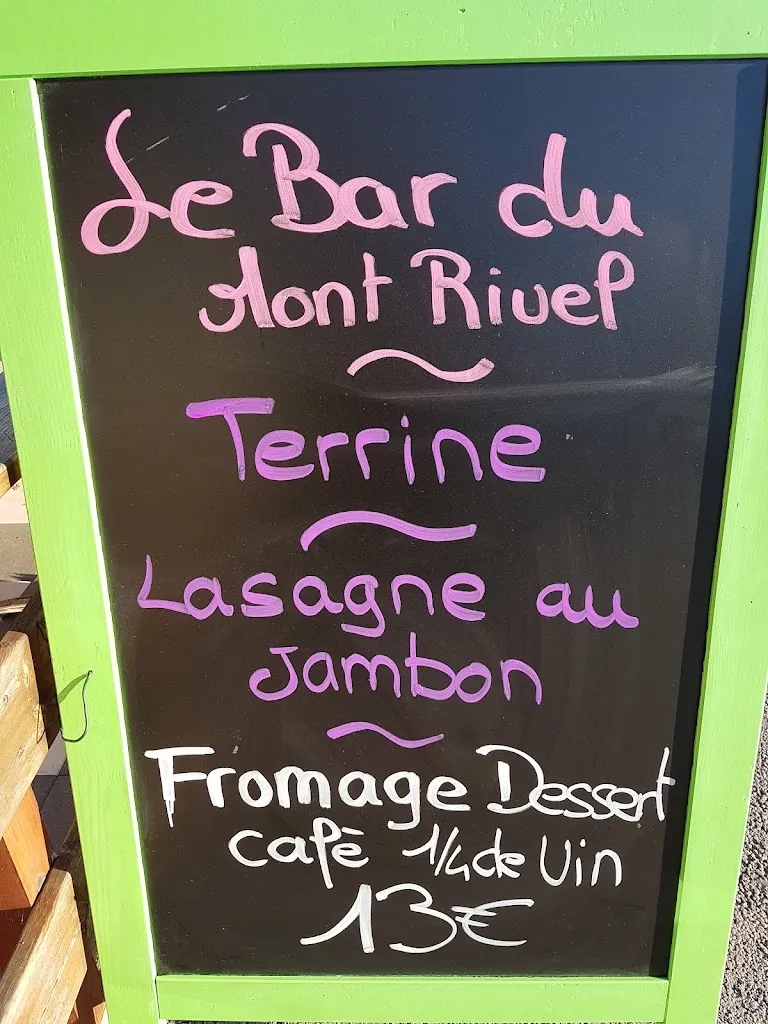 Le Bar du
Mont Rivel
Terrine
Lasagne au
Jambon
Fromage Dessert
cafè 1/4 de Vin
13€